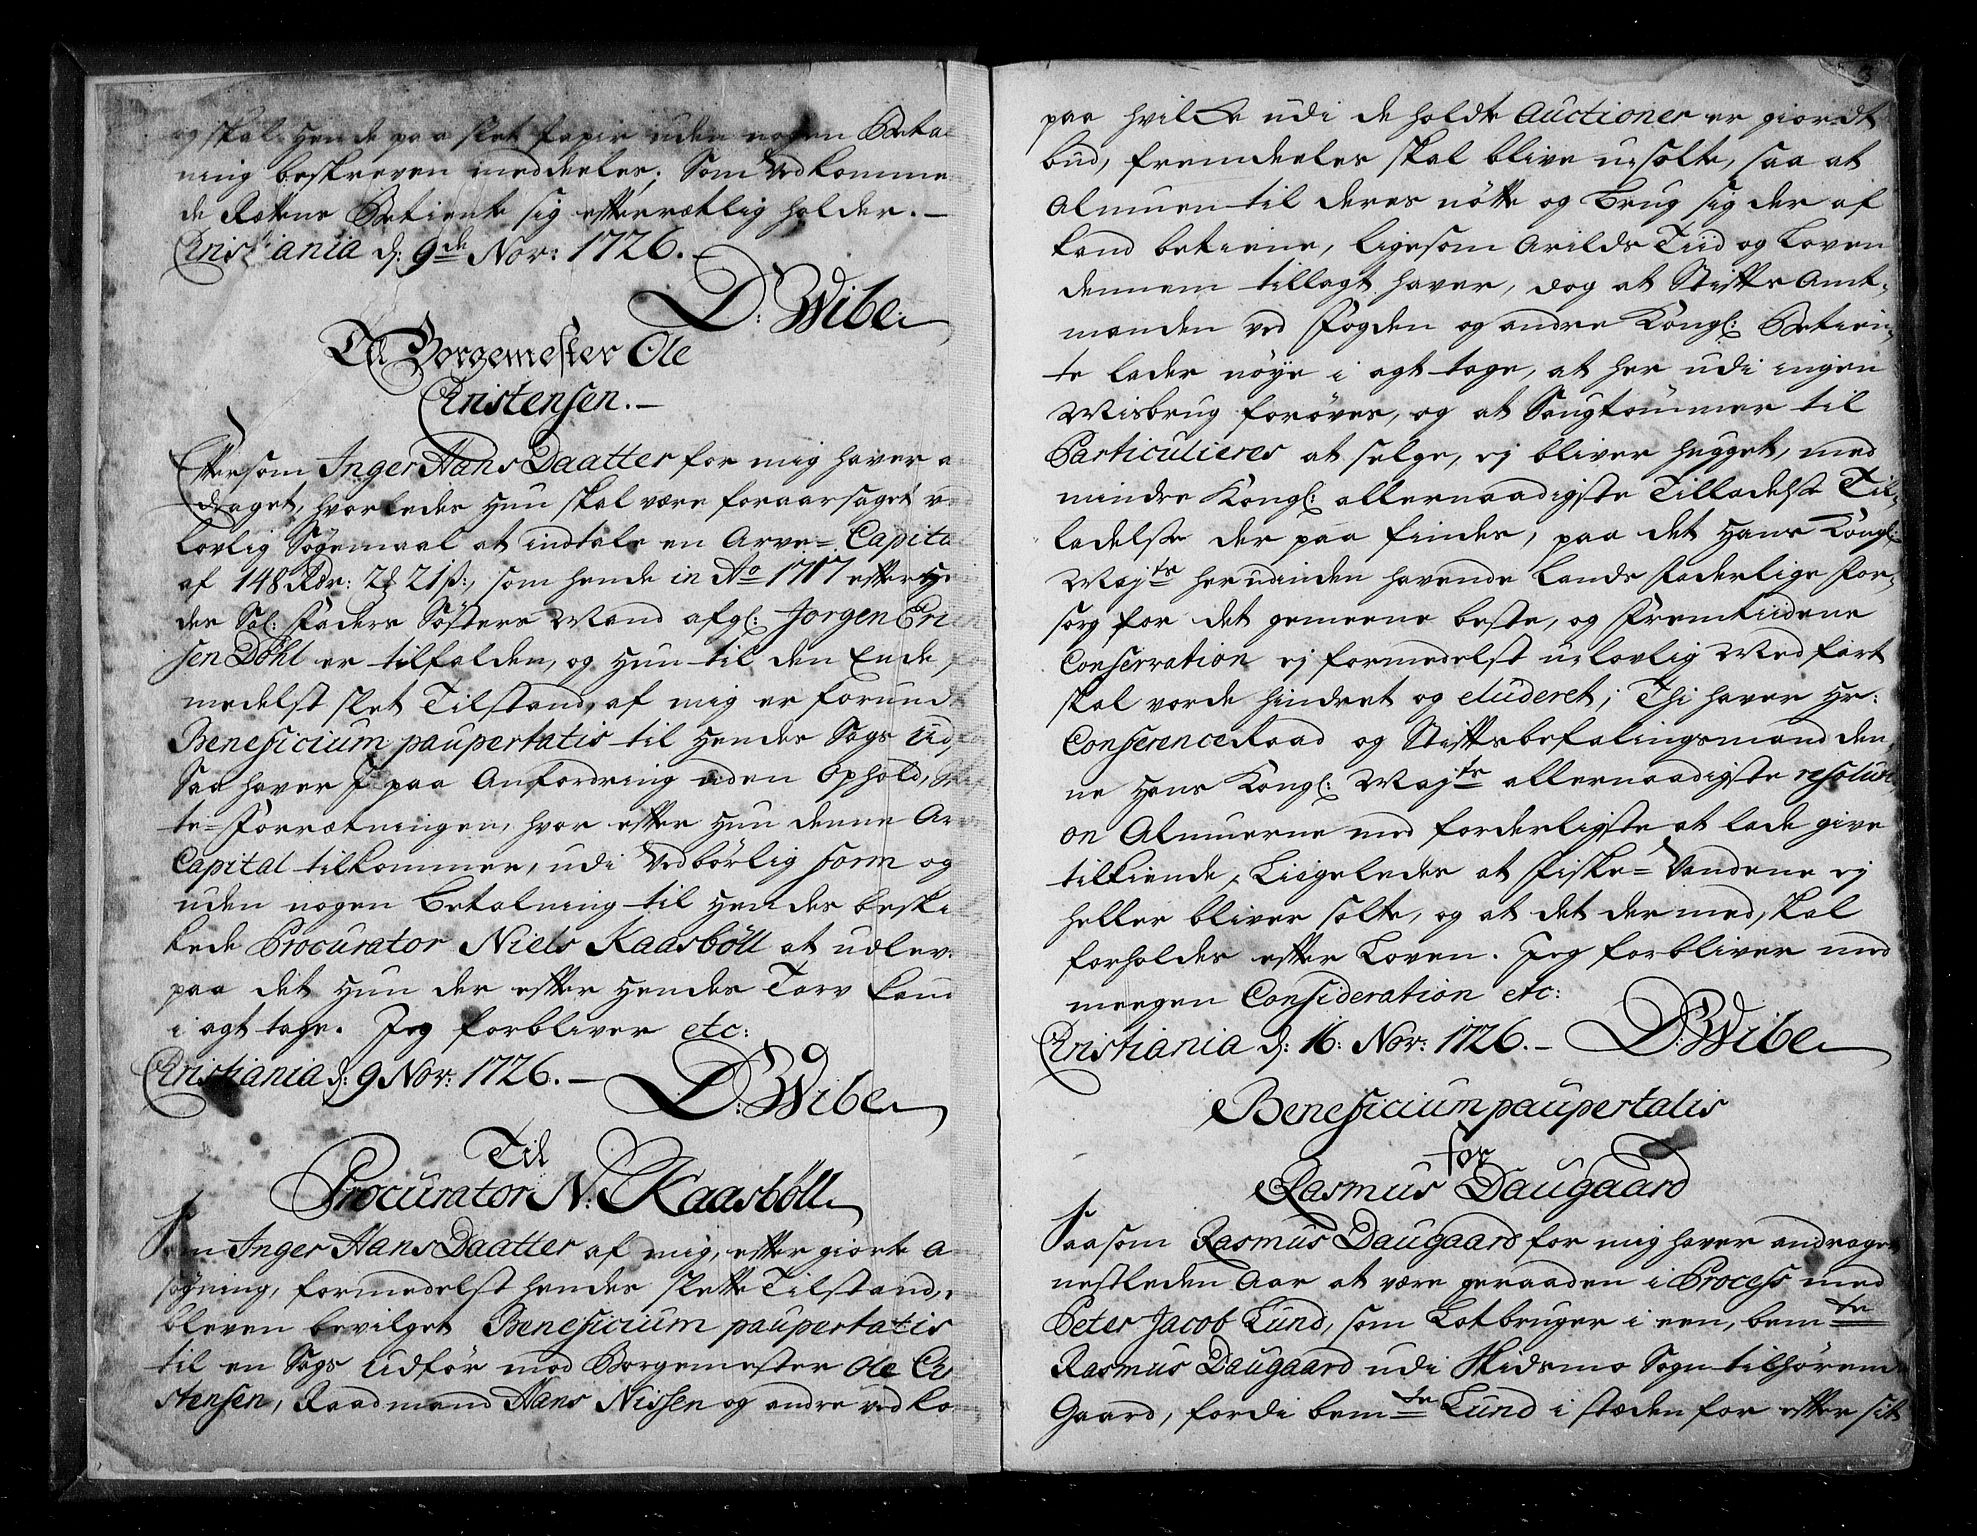 og skal hende paa slet Papir uden nogen Betal
ning beskreven meddeeles; Som vedkommen
de Rettens Betiente sig efterrætlig holder.–
Christiania d: 9de Nov: 1726.–
D: Wibe
Til Borgemester Ole
Christensen.–
Eftersom Inger Hans Daatter for mig haver a
draget, hvorledes hun skal være foraarsaget ved
lovlig Søgemaal at indtale en Arve= Capital
af 148 Rdr: 2 21 ß:, som hende in Ao 1717 efter hen
des Sal: Faders Søsters Mand afg: Jørgen
sen Döhl er tilfalden, og hun til den Ende for
medelst slet Tilstand, af mig er forundt
Beneficium paupertatis til hendes Sags Udfør
Saa haver I paa Anfordring uden Ophold, Skif
te=Forrætningen, hvor efter hun denne Arve
Capital tilkommer, udi vedbörlig form og
uden nogen Betalning til hendes beski
kede Procurator Niels Kaasböll at udlev:
paa det hun der efter hendes Tarv kand
i agt tage. Jeg forbliver etc:
Christiania d: 9 Nov: 1726.–
D: Wibe
Til
Procurator N: Kaasböll
Som Inger Hans Daatter af mig, efter giorte An
søgning, formedelst hendes slette Tilstand, er
bleven bevilget Beneficium paupertatis
til en Sags Udför mod Borgemester Ole Chri
stensen, Raadmand Hans Nissen og andre vedko
3
paa hvilke udi de holdte Auctioner er giordt
bud, fremdeeles skal blive usolte, saa at
Almuen til deres nötte og Brug sig der af
kand betiene, ligesom Arilds Tiid og Loven
dennem tillagt haver, dog at Stifts Amt-
manden ved Fogden og andre Kongl: Betien-
te lader nöye i agt tage, at her udi ingen
Misbrug foröves, og at Saugtömmer til
Particulieres at selge, ej bliver hugget, med
mindre Kongl: allernaadigste Tilladelse Til-
ladelse der paa findes, paa det Hans Kongl:
Majts herudinden havende Lands Faderlige For-
sorg for det gemeene beste, og Fremtiidens
Conservation ej formedelst ulovlig Medfart
skal vorde hindret og eluderet; Thi haver Hr:
Conference Raad og Stiftsbefalingsmand den-
ne Hans Kongl: Majts allernaadigste resoluti
on Almuerne med forderligste at lade give
tilkiende, Liigeledes at Fiske= Vandene ej
heller bliver solte, og at det dermed, skal
forholdes efter Loven. Jeg forbliver med
meegen Consideration etc:
Christiania d: 16: Nov: 1726.–
D: Wibe
Beneficium paupertatis
for
Rasmus Daugaard
Saasom Rasmus Daugaard for mig haver andraget
nestleden Aar at være geraaden i Process med
Peter Jacob Lund, som Lotbruger i een, bemte
Rasmus Daugaard udi Hidsmo Sogn tilhörende
Gaard, fordi bemte Lund i stæden for efter sit